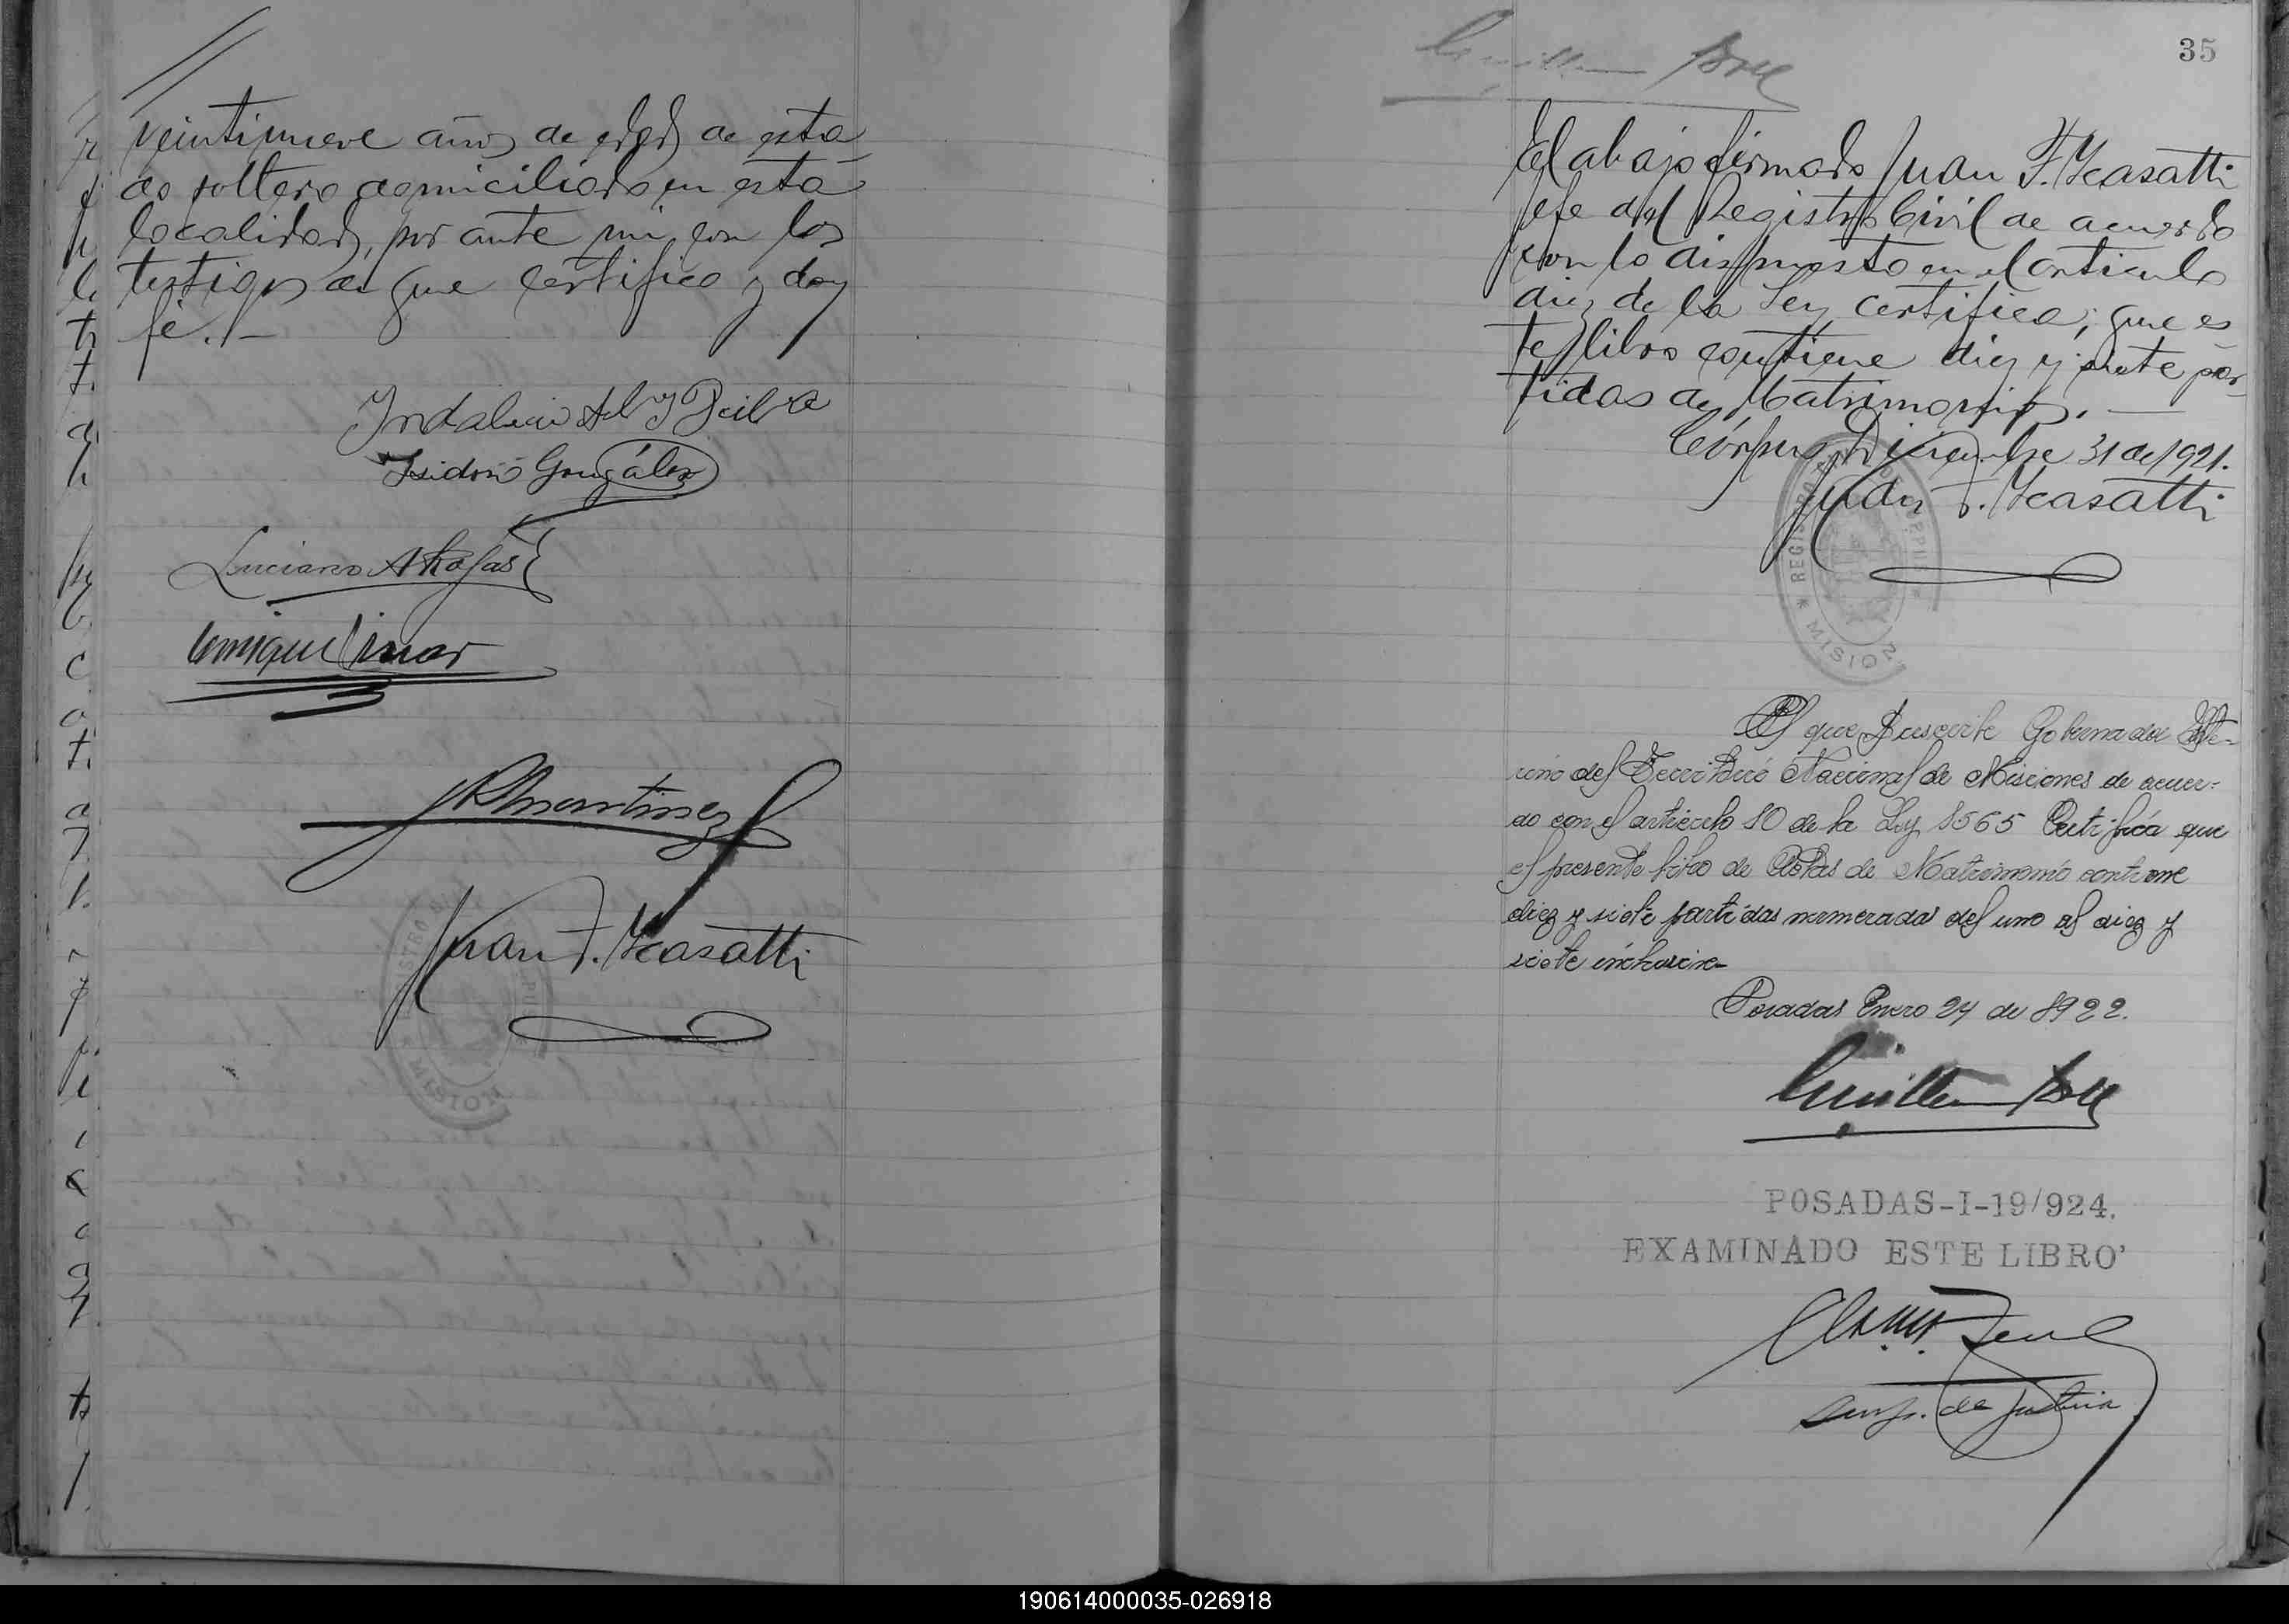 veintinueve años de edad de esta-
do soltero domiciliado en esta
localidad, por ante mi con los
testigos de que certifico y doy
fé.-
Isidoro González
Luciano A Rojas
JRMartinez
Juan F. Icasatti
35
El abajo firmado Juan F. Icasatti
Jefe del Registro Civil de acuerdo
con lo dispuesto en el articulo
diez de la Ley certifica; que es
te libro contiene diez y siete par-
tidas de Matrimonios.
Córpus Diciembre 31 de 1921.
Juan F. Icasatti
REGIS
MISION
El que suscribe Gobernador Inte-
rino del Territorio Nacional de Misiones de acuer-
do con el articulo 10 de la Ley 1565 Certifica que
el presente libro de Actas de Matrimonio contiene
diez y siete partidas numeradas del uno al diez y
siete inclusive-
Posadas Enero 24 de 1922.
POSADAS-I-19/924.
EXAMINADO ESTE LIBRO
Insp. de Justicia
190614000035-026918